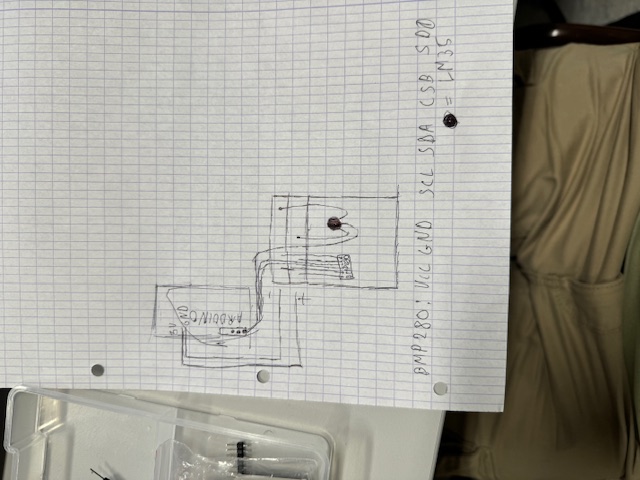 5V
GND
ARDUINO
-
+
BMP280: VCC GND SCL SDA CSB SDO
= LM35